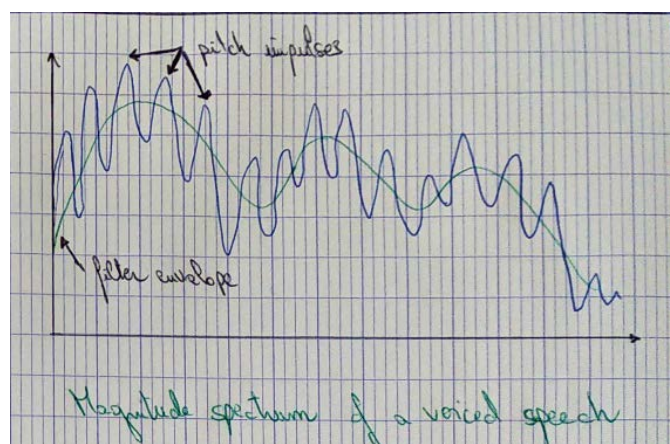 pitch impulses
filter envelope
Magnitude spectrum of a voiced speech